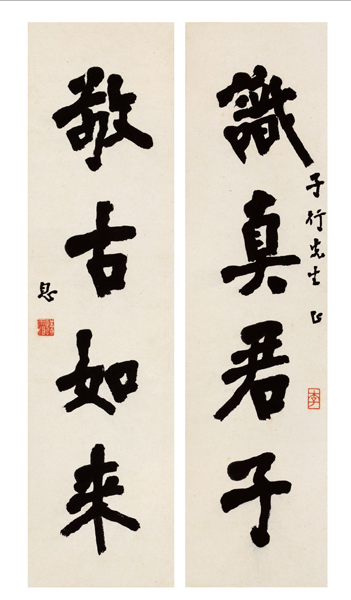 識真君子
子行先生正
李
敬古如来